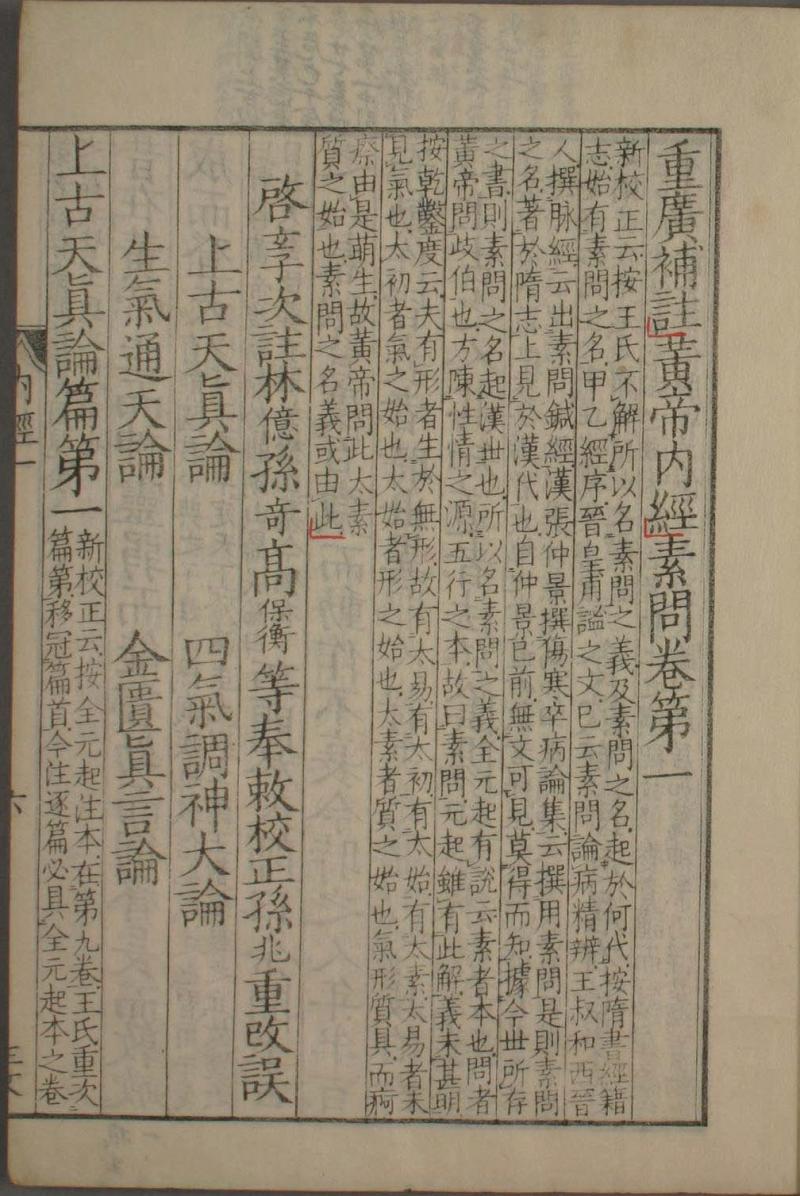 重廣補註黃帝內經素問卷第一
新校正云按王氏不解所以名素問之義及素問之名起於何代按隋書經籍
志始有素問之名甲乙經序晉皇甫謐之文已云素問論病精辨王叔和西晉
人撰脉經云出素問鍼經漢張仲景撰傷寒卒病論集云撰用素問是則素問
之名著於隋志上見於漢代也自仲景已前無文可見莫得而知據今世所存
之書則素問之名起漢世也所以名素問之義全元起有說云素者本也問者
黃帝問歧伯也方陳性情之源五行之本故曰素問元起雖有此解義未甚明
按乾鑿度云夫有形者生於無形故有太易有太初有太始有太素太易者未
見氣也太初者氣之始也太始者形之始也太素者質之始也氣形質具而痾
瘵由是萌生故黃帝問此太素
質之始也素問之名義或由此
啓玄子次註林億孫奇高保衡等奉敕校正孫兆重改誤
上古天眞論 四氣調神大論
生氣通天論 金匱眞言論
上古天眞論篇第一
新校正云按全元起注本在第九卷王氏重次
篇第移冠篇首今注逐篇必具全元起本之卷
內經一
六